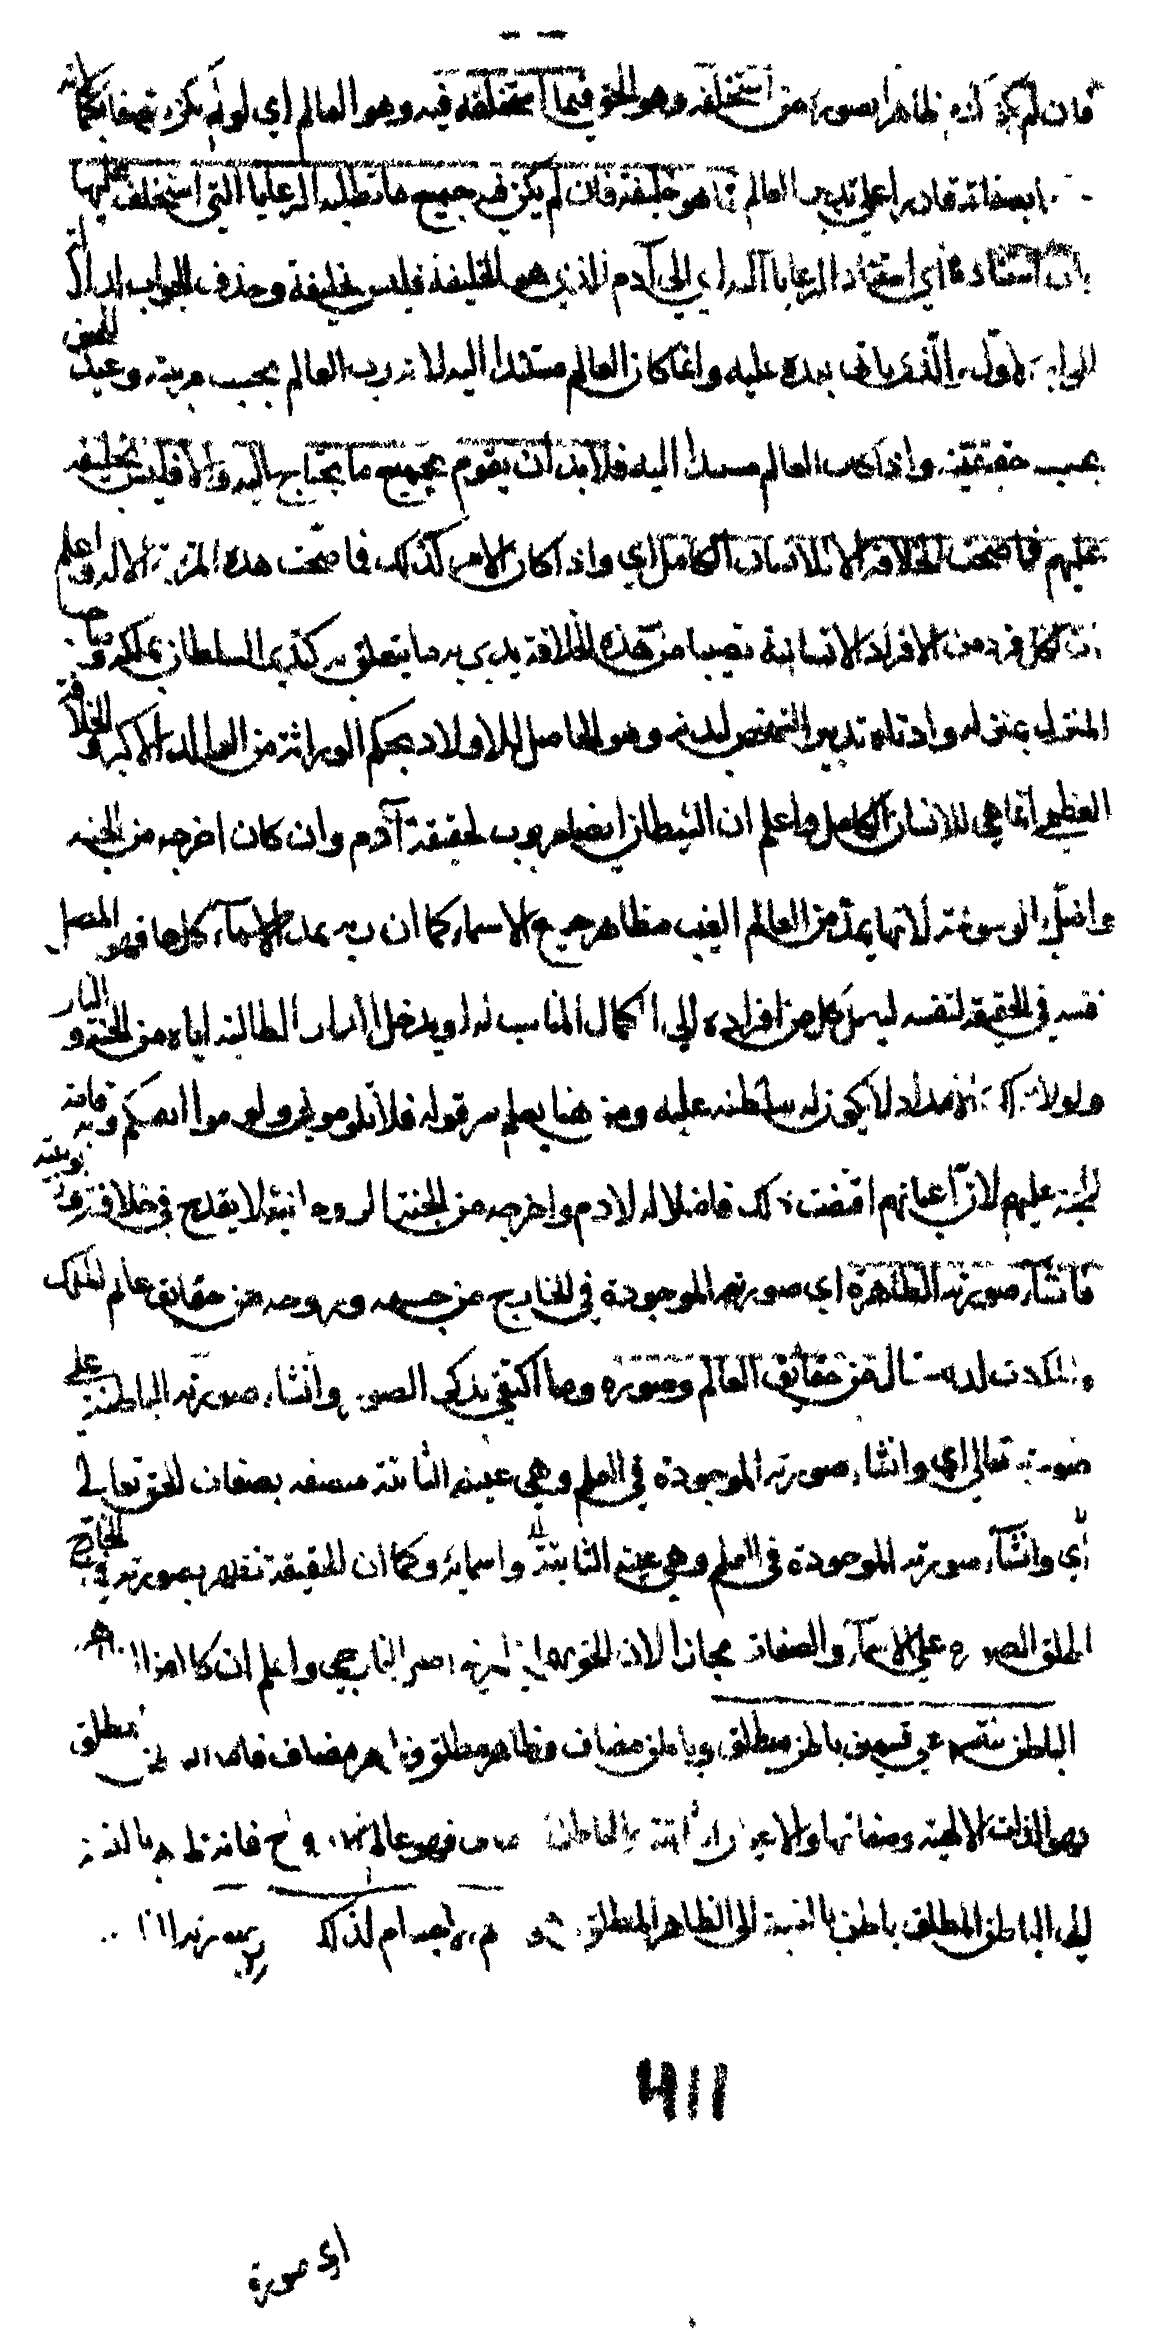 فان لم يكن ظاهرا بصورة من استخلفه وهو الحق فيما استخلفه فيه وهو العالم اي لو لم يكن متصفا بكمالاته
بصفاته قادرا على تدبير العالم فما هو خليفة فان لم يكن فيه جميع ما تطلبه الرعايا التي استخلف عليها
لان استنادها أي استناد الرعايا اليه اي الى آدم الذي هو الخليفة فليس بخليفة وحذف الجواب لدلالة
الجواب الاول الذي ياتي بعده عليه وانما كان العالم مستندا اليه لانه رب العالم بحسب مرتبته وعبد للحق
بحسب حقيقته واذا كان العالم مستندا اليه فلا بد ان يقوم بجميع ما يحتاج اليه والا فليس بخليفة
عليهم فما صحت الخلافة الا للانسان الكامل اي واذا كان الامر كذلك فما صحت هذه المرتبة الا له واعلم
ان لكل فرد من الافراد الانسانية نصيبا من هذه الخلافة يدبر به ما يتعلق به كتدبير السلطان لملكه وصاحب
المنزل لمنزله وادناه تدبير الشخص لبدنه وهو الحاصل للاولاد بحكم الوراثة من الوالد الاكبر والخلافة
العظمى انما هي للانسان الكامل واعلم ان الشيطان ايضا مربوب لحقيقة آدم وان كان اخرجه من الجنة
واضله بالوسوسة لانها تمد من العالم الغيب مظاهر جميع الاسماء كما ان ربه يمد الاسماء كلها فهو المضل
نفسه في الحقيقة لنفسه ليصل كل من افراده الى الكمال المناسب له ويدخل الدار الطالبة اياه من الجنة والنار
ولولا ذلك الامداد لا يكون له سلطنة عليه ومن هنا يعلم سر قوله فلا تلوموني ولوموا انفسكم وبه قامت
الحجة عليهم لان اعيانهم اقتضت ذلك فاضلاله لادم واخرجه من الجنة الروحانية لا يقدح في خلافته وربوبيته
فانشاء صورته الظاهرة اي صورته الموجودة في الخارج من جسمه وروحه من حقائق عالم الملك
والملكوت لذلك قال من حقائق العالم وصوره وما اكتفي بذكر الصور وانشاء صورته الباطنة على
صورته تعالى اي وانشاء صورته الموجودة في العلم وهي عينه الثابتة متصفة بصفات الحق تعالى
أي وانشاء صورته الموجودة في العلم وهي عينه الثابتة واسمائه وكما ان الحقيقة تظهر بصورته في الخارج
اطلق الصورة على الاسماء والصفات مجازا لان الحق واعلم ان كلا من
الباطن ينقسم على قسمين باطن مطلق وباطن مضاف وظاهر مطلق وظاهر مضاف فاما الباطن المطلق
فهو الذات الالهية وصفاتها والاعيان الثابتة والباطن المضاف فهو عالم فانه ظاهر بالنسبة
الى الباطن المطلق باطن بالنسبة الى الظاهر المطلق وهو عالم الاجسام لذلك
٤١١
اي صورة